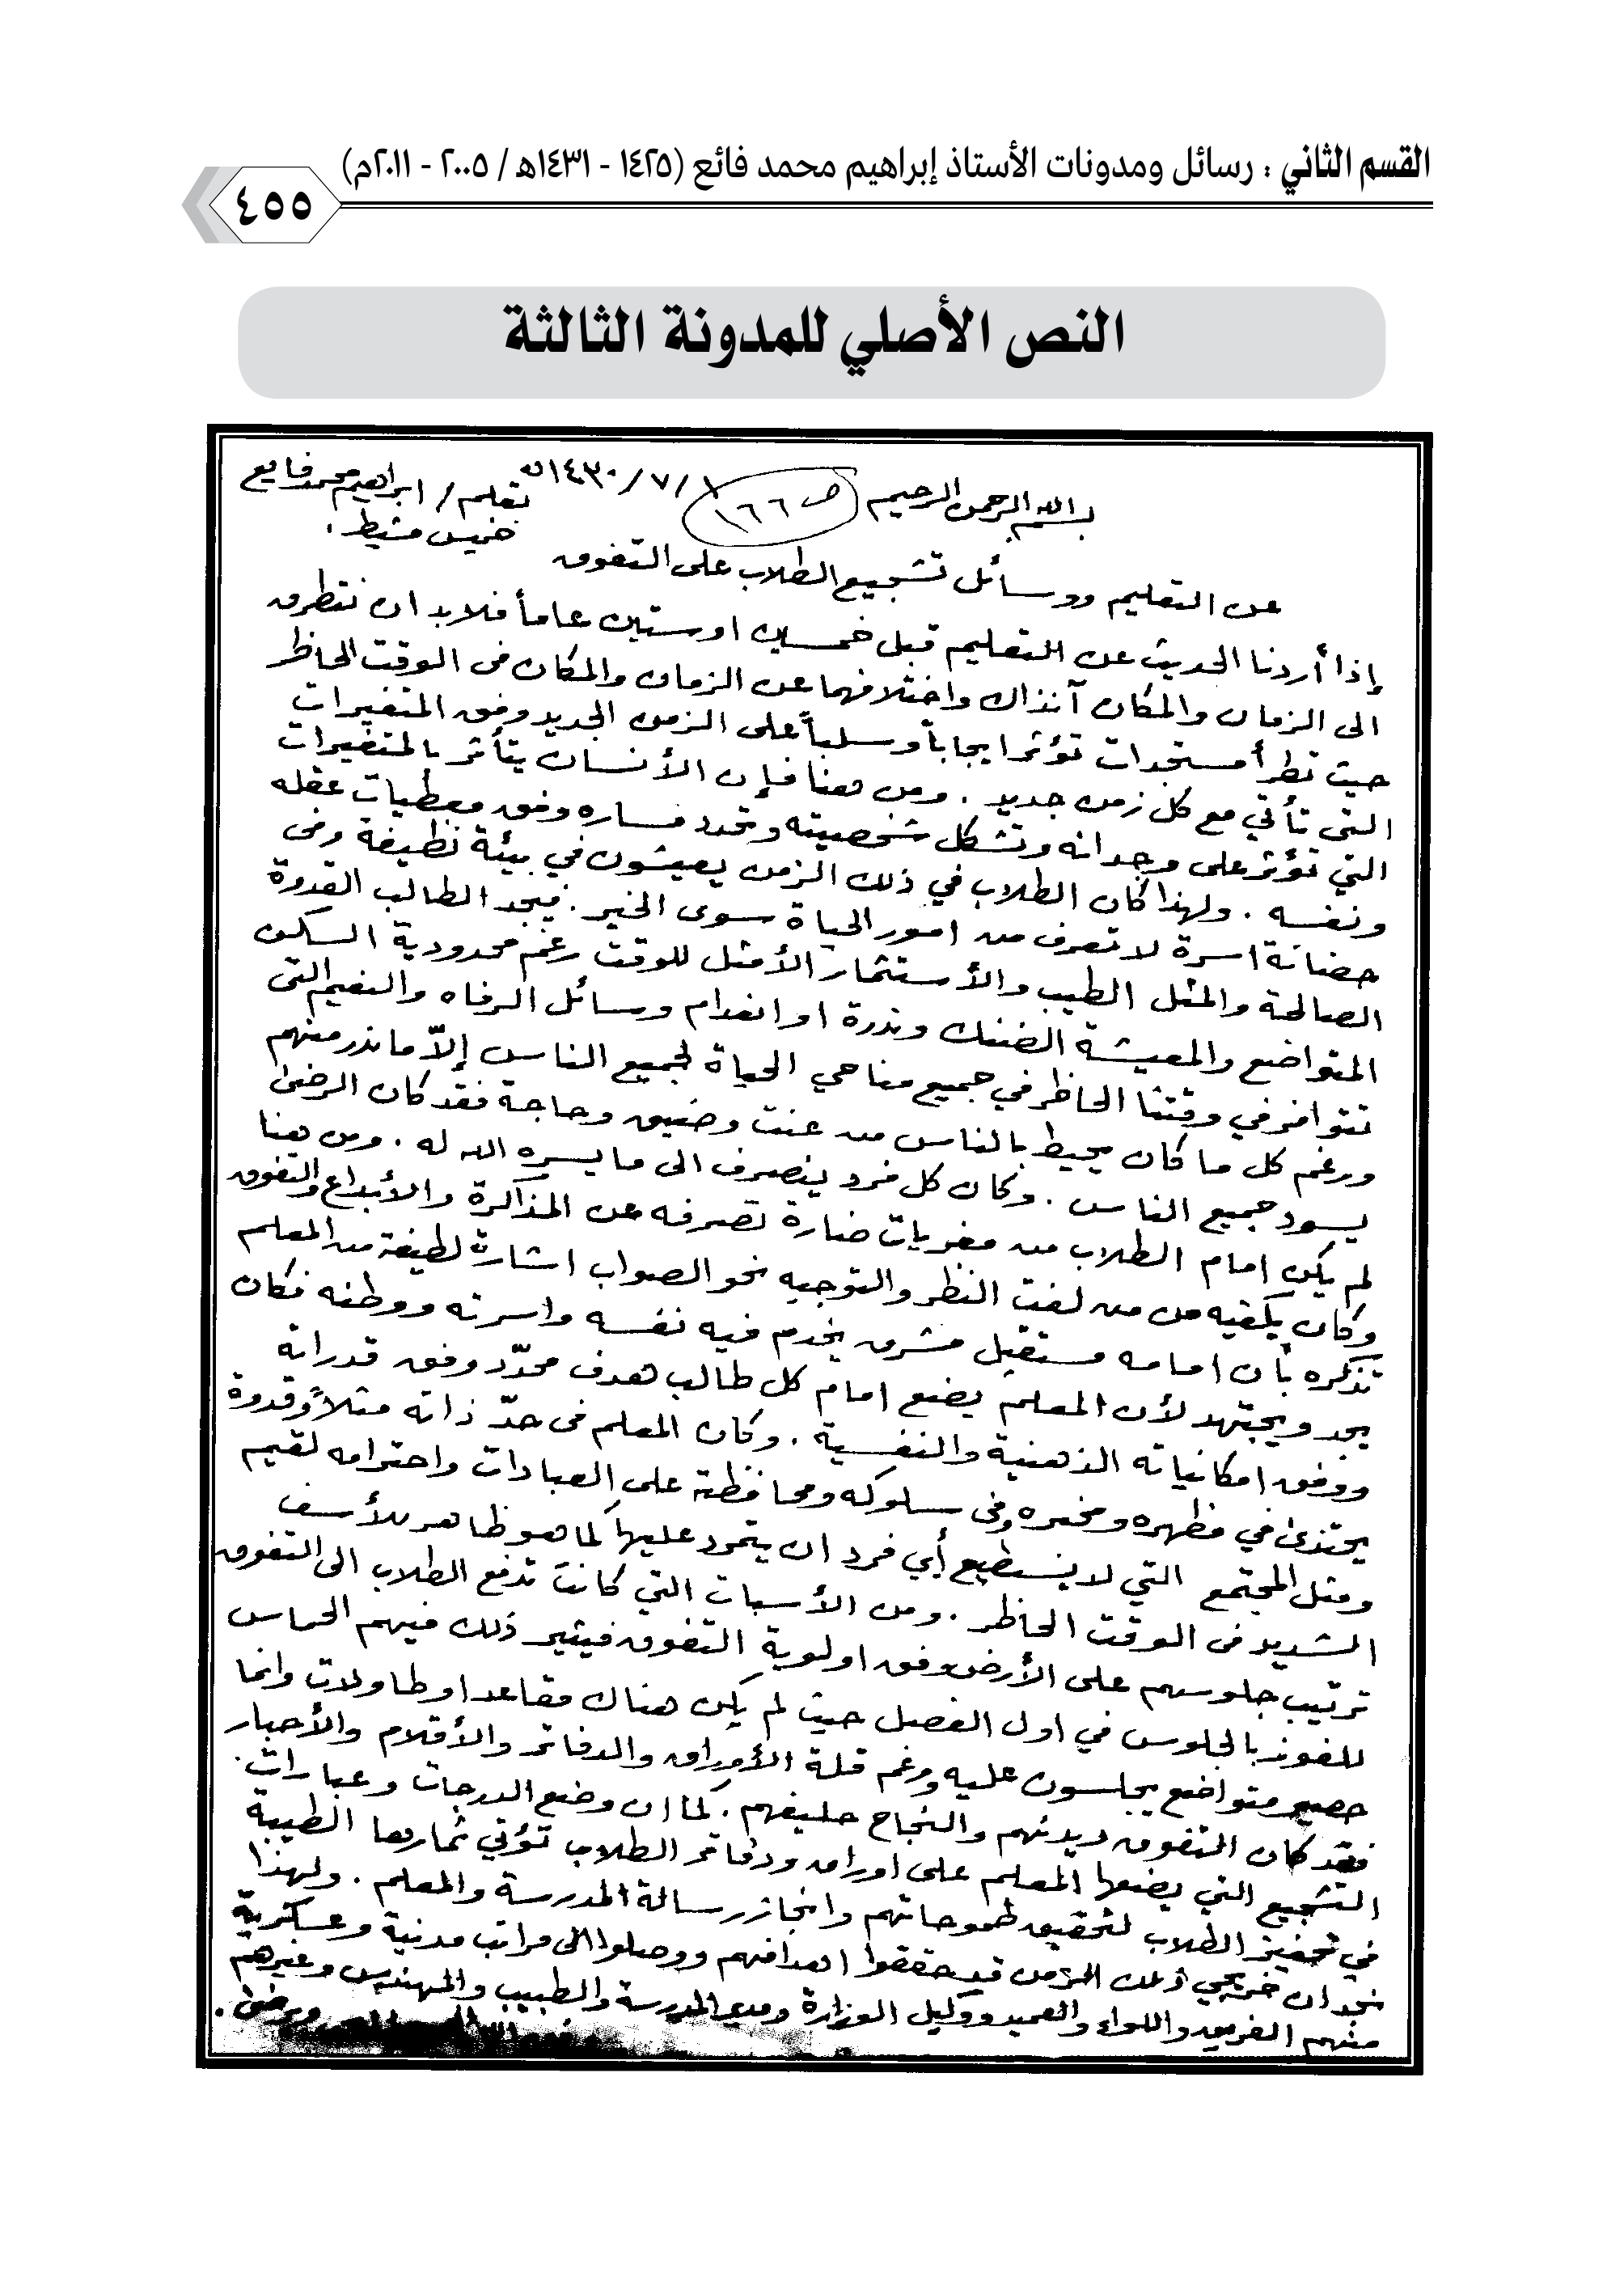 القسم الثاني : رسائل ومدونات الأستاذ إبراهيم محمد فائع (١٤٢٥ - ١٤٣١هـ / ٢٠٠٥ - ٢٠١١م)
٤٥٥
النص الأصلي للمدونة الثالثة
بسم الله الرحمن الرحيم ص ١٦٦ ١/٧/١٤٣٠هـ بقلم/ ابراهيم محمد فايع
خميس مشيط .
عن التعليم ووسائل تشجيع الطلاب على التفوق
إذا أردنا الحديث عن التعليم قبل خمسين او ستين عاماً فلابد ان نتطرق
الى الزمان والمكان آنذاك واختلافهما عن الزمان والمكان فى الوقت الحاظر
حيث تطرأ مستجدات تؤثر ايجاباً وسلباً على الزمن الجديد وفق المتغيرات
التى تأتي مع كل زمن جديد . ومن هنا فإن الأنسان يتأثر بالمتغيرات
التي تؤثر على وجدانه وتشكل شخصيته وتحدد مساره وفق معطيات عقله
ونفسه . ولهذا كان الطلاب في ذلك الزمن يعيشون في بيئة نظيفة وفى
حضانة اسرة لا تعرف من امور الحياة سوى الخير . فيجد الطالب القدوة
الصالحة والمثل الطيب والأستثمار الأمثل للوقت رغم محدودية السكن
المتواضع والمعيشة الضنك وندرة او انعدام وسائل الرفاه والنعيم التى
تتوافر في وقتنا الحاظر في جميع مناحي الحياة لجميع الناس إلاّ ما ندر منهم
ورغم كل ما كان يحيط بالناس من عنت وضيق وحاجة فقد كان الرضى
يسود جميع الناس . وكان كل فرد ينصرف الى ما يسره الله له . ومن هنا
لم يكن امام الطلاب من مغريات ضارة تصرفه عن المذاكرة والأبداع والتفوق
وكان يكفيه من من لفت النظر والتوجيه نحو الصواب اشارة لطيفة من المعلم
تذكره بأن امامه مستقبل مشرق يخدم فيه نفسه واسرته ووطنه فكان
يجد ويجتهد لأن المعلم يضع امام كل طالب هدف محدّد وفق قدراته
ووفق امكانياته الذهنية والنفسية . وكان المعلم فى حدّ ذاته مثلاً وقدوة
يحتذى في مظهره ومخبره وفى سلوكه ومحافظته على العبادات واحترامه لقيم
ومثل المجتمع التي لا يستطيع أي فرد ان يتمرد عليها كما هو ظاهر للأسف
الشديد فى الوقت الحاظر . ومن الأسباب التي كانت تدفع الطلاب الى التفوق
ترتيب جلوسهم على الأرض وفق اولوية التفوق فيثير ذلك فيهم الحماس
للفوز بالجلوس في اول الفصل حيث لم يكن هناك مقاعد او طاولات وانما
حصير متواضع يجلسون عليه ورغم قلة الأوراق والدفاتر والأقلام والأحبار
فقد كان التفوق ديدنهم والنجاح حليفهم . كما ان وضع الدرجات وعبارات
التشجيع التي يضعها المعلم على اوراق ودفاتر الطلاب تؤتي ثمارها الطيبة
في تحفيز الطلاب لتحقيق طموحاتهم وانجاز رسالة المدرسة والمعلم . ولهذا
نجد ان خريجي ذلك الزمن قد حققوا اهدافهم ووصلوا الى مراتب مدنية وعسكرية
منهم الفريق واللواء والعميد ووكيل الوزارة ومدير المدرسة والطبيب والمهندس وغيرهم